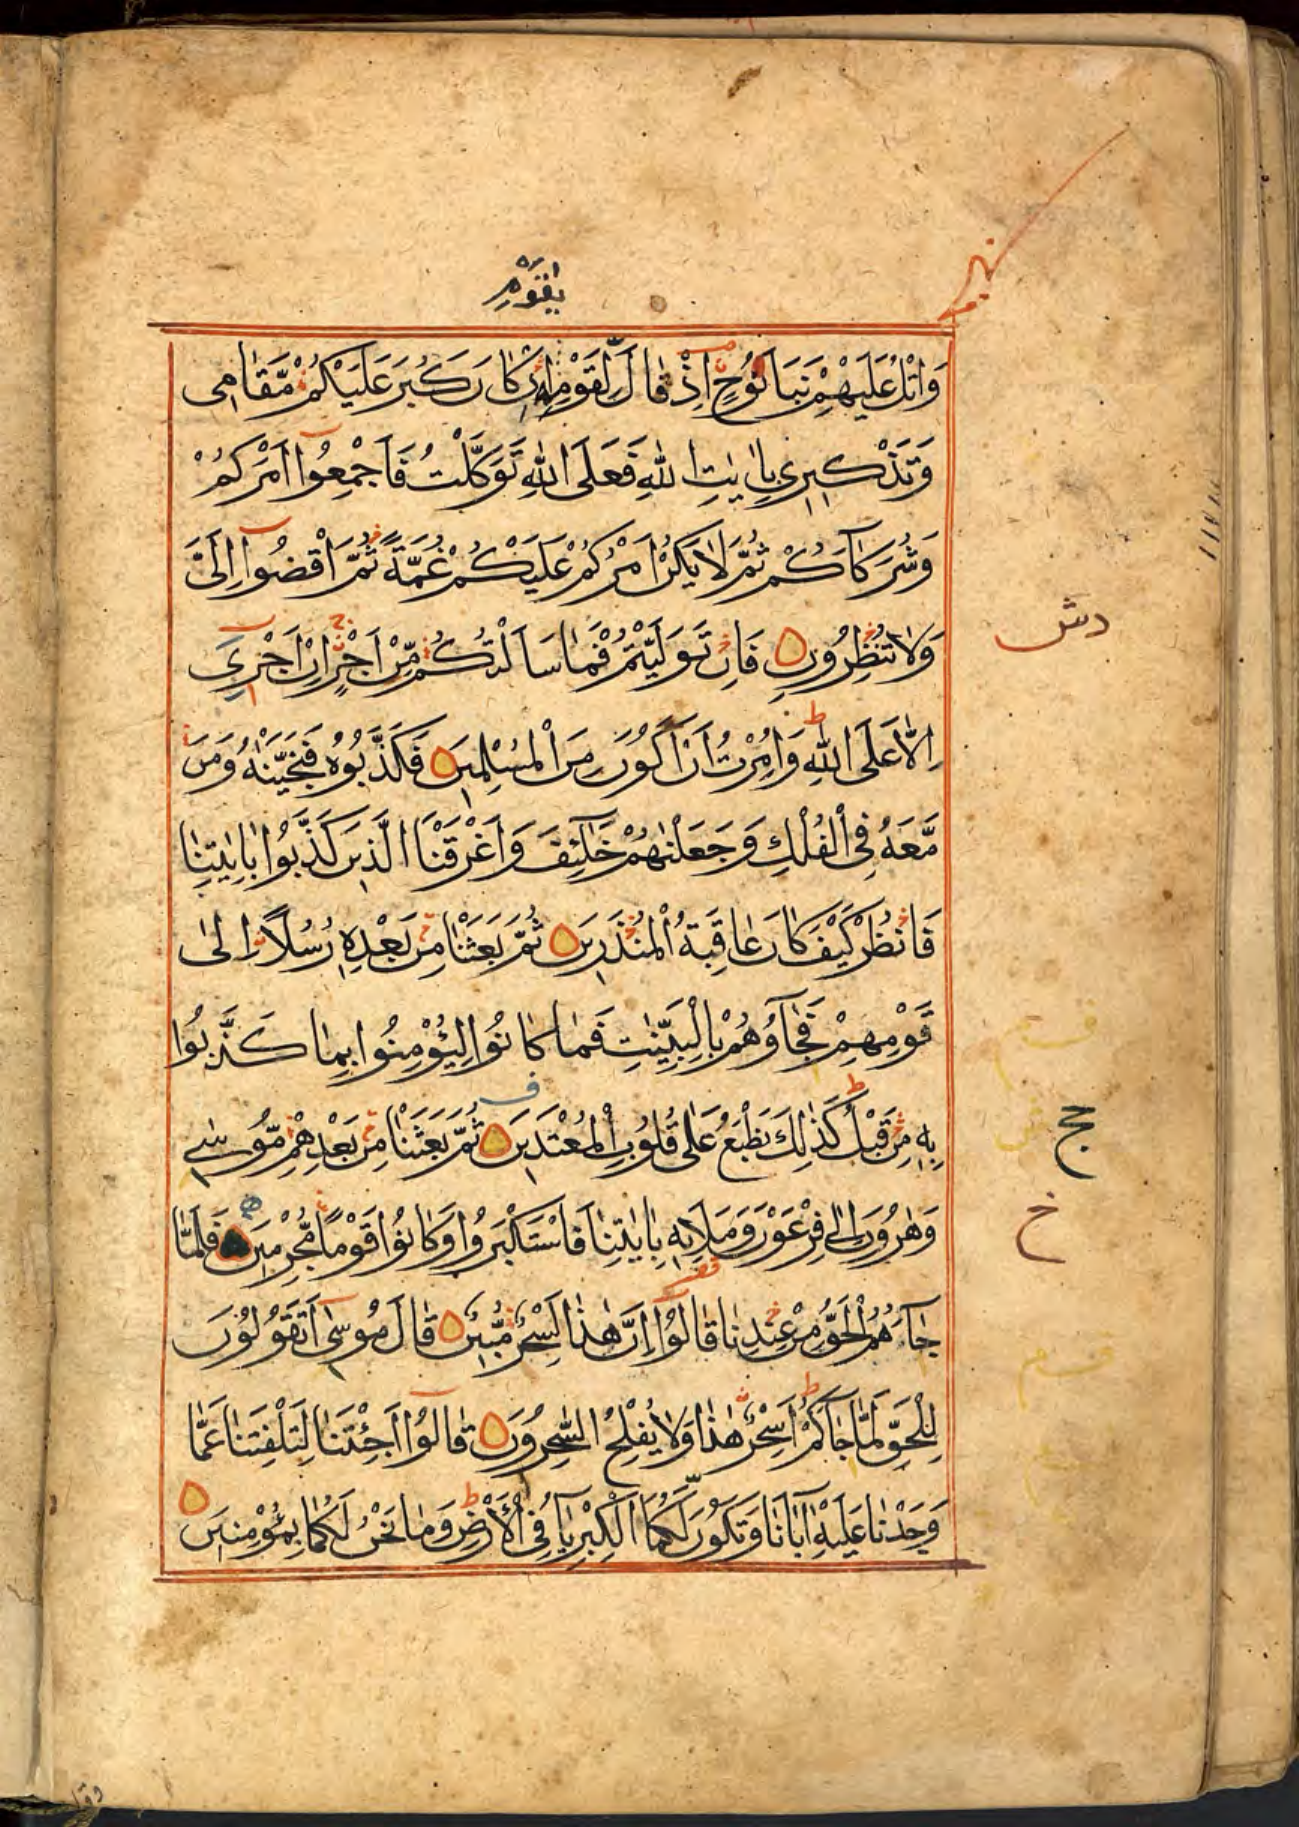 يٰقَوْمِ
وَاتْلُ عَلَيْهِمْ نَبَاَ نُوحٍ اِذْ قَالَ لِقَوْمِهٖ اِنْ كَانَ كَبُرَ عَلَيْكُمْ مَّقَامِى
وَتَذْكِيرِى بِاٰيٰتِ اللّٰهِ فَعَلَى اللّٰهِ تَوَكَّلْتُ فَاَجْمِعُوٓا اَمْرَكُمْ
وَشُرَكَآءَكُمْ ثُمَّ لَا يَكُنْ اَمْرُكُمْ عَلَيْكُمْ غُمَّةً ثُمَّ اقْضُوٓا اِلَىَّ
وَلَا تُنْظِرُونِ ۝ فَاِنْ تَوَلَّيْتُمْ فَمَا سَاَلْتُكُمْ مِّنْ اَجْرٍ اِنْ اَجْرِىَ
اِلَّا عَلَى اللّٰهِ ط وَاُمِرْتُ اَنْ اَكُونَ مِنَ الْمُسْلِمِينَ ۝ فَكَذَّبُوهُ فَنَجَّيْنٰهُ وَمَنْ
مَّعَهُ فِى الْفُلْكِ وَجَعَلْنٰهُمْ خَلٰٓئِفَ وَاَغْرَقْنَا الَّذِينَ كَذَّبُوا بِاٰيٰتِنَا
فَانْظُرْ كَيْفَ كَانَ عَاقِبَةُ الْمُنْذَرِينَ ۝ ثُمَّ بَعَثْنَا مِنْ بَعْدِهٖ رُسُلًا اِلٰى
قَوْمِهِمْ فَجَآؤُهُمْ بِالْبَيِّنٰتِ فَمَا كَانُوا لِيُؤْمِنُوا بِمَا كَذَّبُوا
بِهٖ مِنْ قَبْلُ ط كَذٰلِكَ نَطْبَعُ عَلٰى قُلُوبِ الْمُعْتَدِينَ ۝ ثُمَّ بَعَثْنَا مِنْ بَعْدِهِمْ مُّوسٰى
وَهٰرُونَ اِلٰى فِرْعَوْنَ وَمَلَا۟ئِهٖ بِاٰيٰتِنَا فَاسْتَكْبَرُوا وَكَانُوا قَوْمًا مُّجْرِمِينَ ۝ فَلَمَّا
جَآءَهُمُ الْحَقُّ مِنْ عِنْدِنَا قَالُوٓا اِنَّ هٰذَا لَسِحْرٌ مُّبِينٌ ۝ قَالَ مُوسٰٓى اَتَقُولُونَ
لِلْحَقِّ لَمَّا جَآءَكُمْ ط اَسِحْرٌ هٰذَا وَلَا يُفْلِحُ السّٰحِرُونَ ۝ قَالُوٓا اَجِئْتَنَا لِتَلْفِتَنَا عَمَّا
وَجَدْنَا عَلَيْهِ اٰبَآءَنَا وَتَكُونَ لَكُمَا الْكِبْرِيَآءُ فِى الْاَرْضِ ط وَمَا نَحْنُ لَكُمَا بِمُؤْمِنِينَ ۝
دش
حج
خ